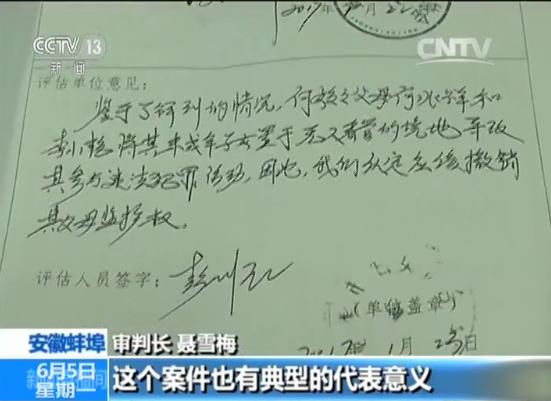 CCTV 13
新闻
CNTV
评估单位意见:
鉴于了解到的情况,何某之父母何
李小艳将其未成年子女置于无人看管的境地导致
其参与违法犯罪活动,因此,我们认定应该撤销
其父母监护权。
评估人员签字:
(单位盖章)
安徽蚌埠
审判长 聂雪梅
6月5日
星期一
这个案件也有典型的代表意义